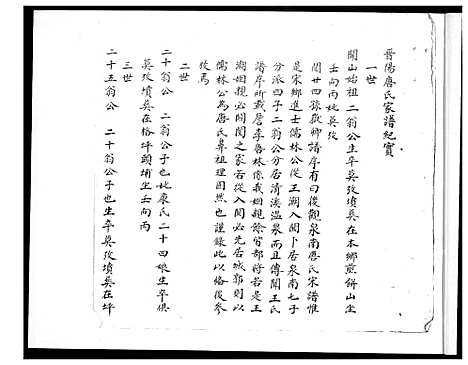 晋陽唐氏家譜紀實
一世
開山始祖二翁公生卒莫攷墳葬在本鄉煎餅山坐
壬向丙妣莫攷
閱廿四孫歎鄉譜序有曰後觀泉南唐氏宋譜惟
是宋鄉進士儒林公從王潮入閩卜居泉南七子
分派四子二翁公分居清溪温泉而且傳開王氏
譜序所載詹李魯林係我姻親餘皆部將若是王
潮姻親必開閩之家若從入閩必先居城郭則以
儒林公為唐氏鼻祖理固然也謹錄此以俻後參
攷焉
二世
二十翁公 二翁公子也妣康氏二十四娘生卒俱
莫攷墳葬在格坪頭埔坐壬向丙
三世
二十五翁公 二十翁公子也生卒莫攷墳葬在坪